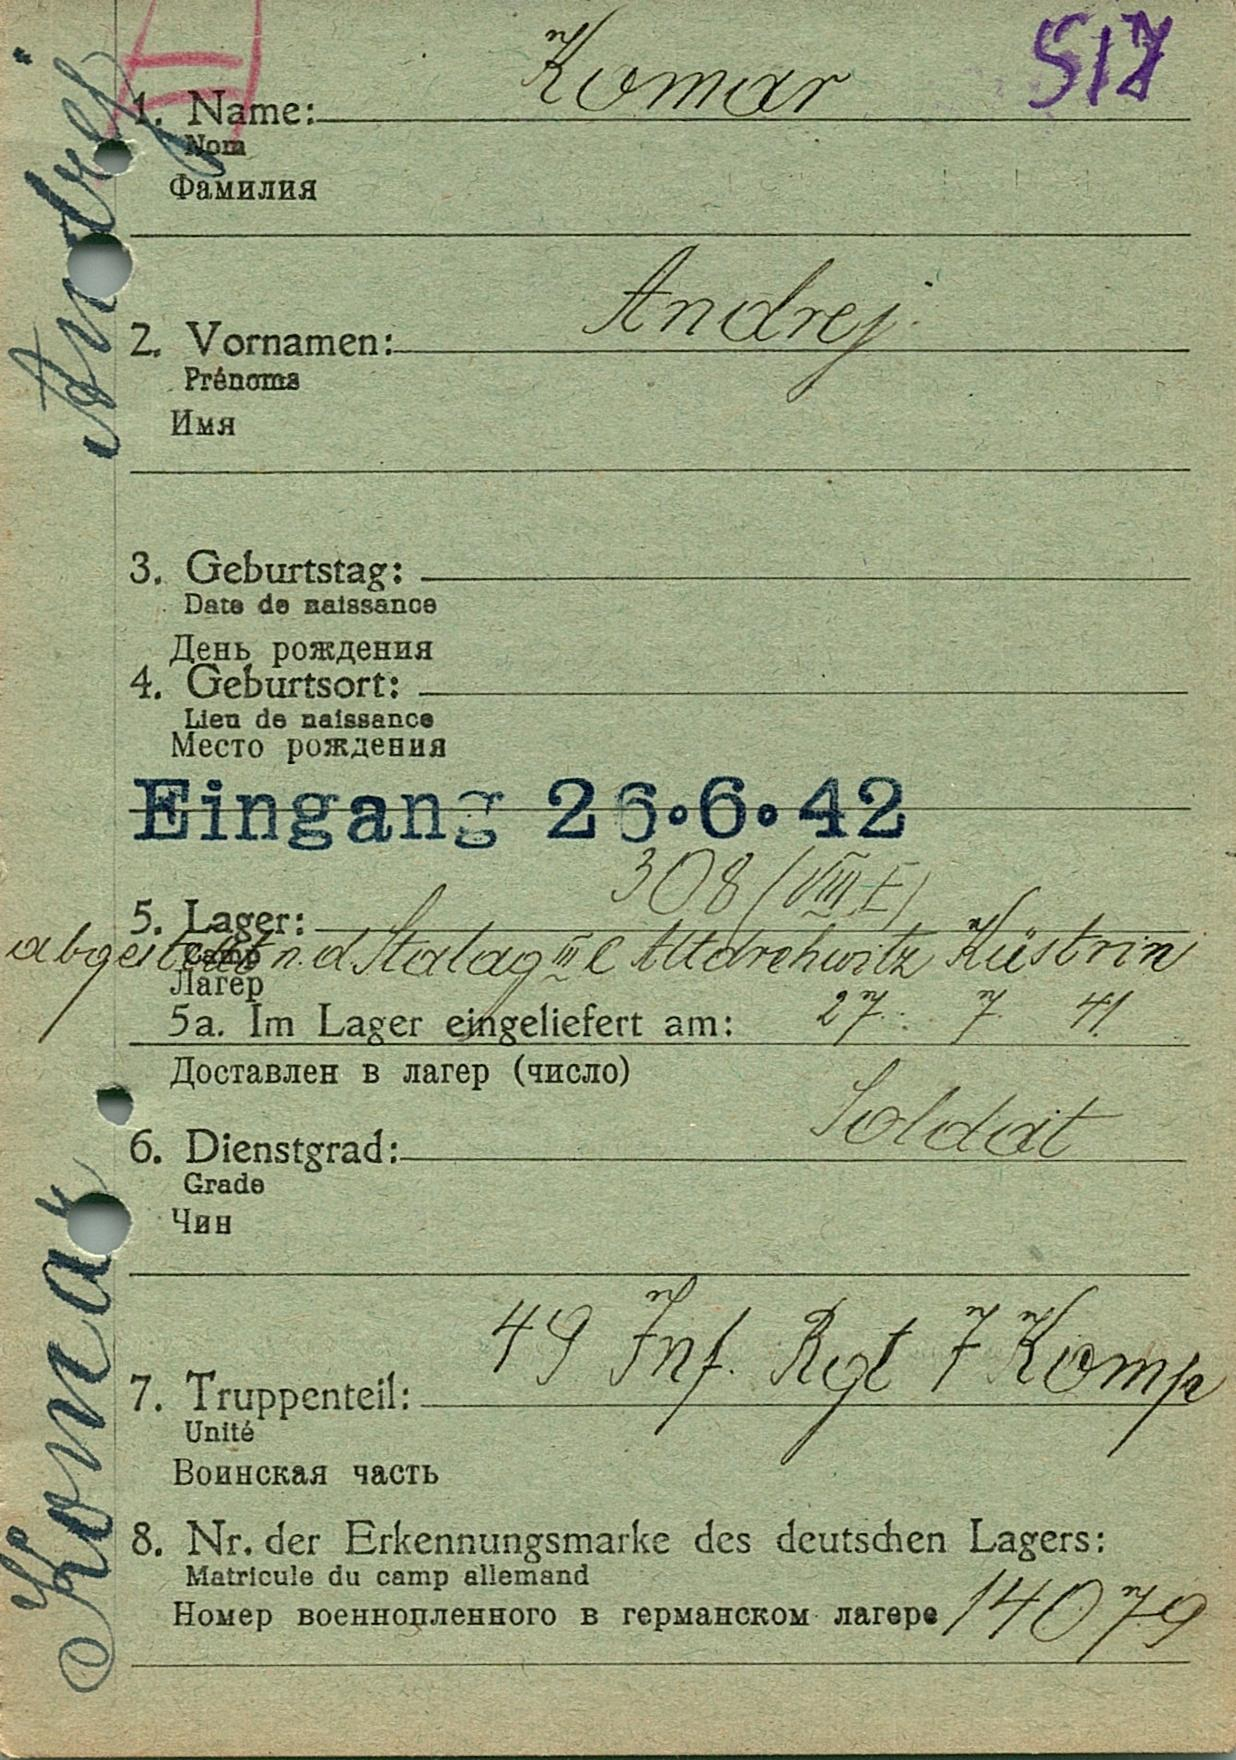 II
517
Komar
1. Name:
Nom
Фамилия
Andrej
2. Vornamen:
Prénoms
Имя
3. Geburtstag:
Date de naissance
День рождения
4. Geburtsort:
Lieu de naissance
Место рождения
Eingang 26.6.42
308 (VIII E)
5. Lager:
Camp
n. d Stalag III C Altdrehwitz Küstrin
Лагер
5a. Im Lager eingeliefert am: 27. 7 41.
Доставлен в лагер (число)
Soldat
6. Dienstgrad:
Grade
Чин
49 Inf. Rgt 7 Komp
7. Truppenteil:
Unité
Воинская часть
8. Nr. der Erkennungsmarke des deutschen Lagers:
Matricule du camp allemand
Номер военнопленного в германском лагере 14079
Komar Andrej